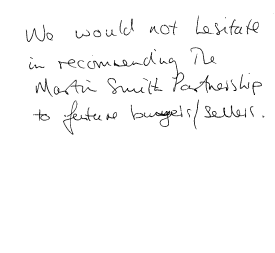 We would not hesitate
in recommending The
Martin Smith Partnership
to future buyers/sellers.